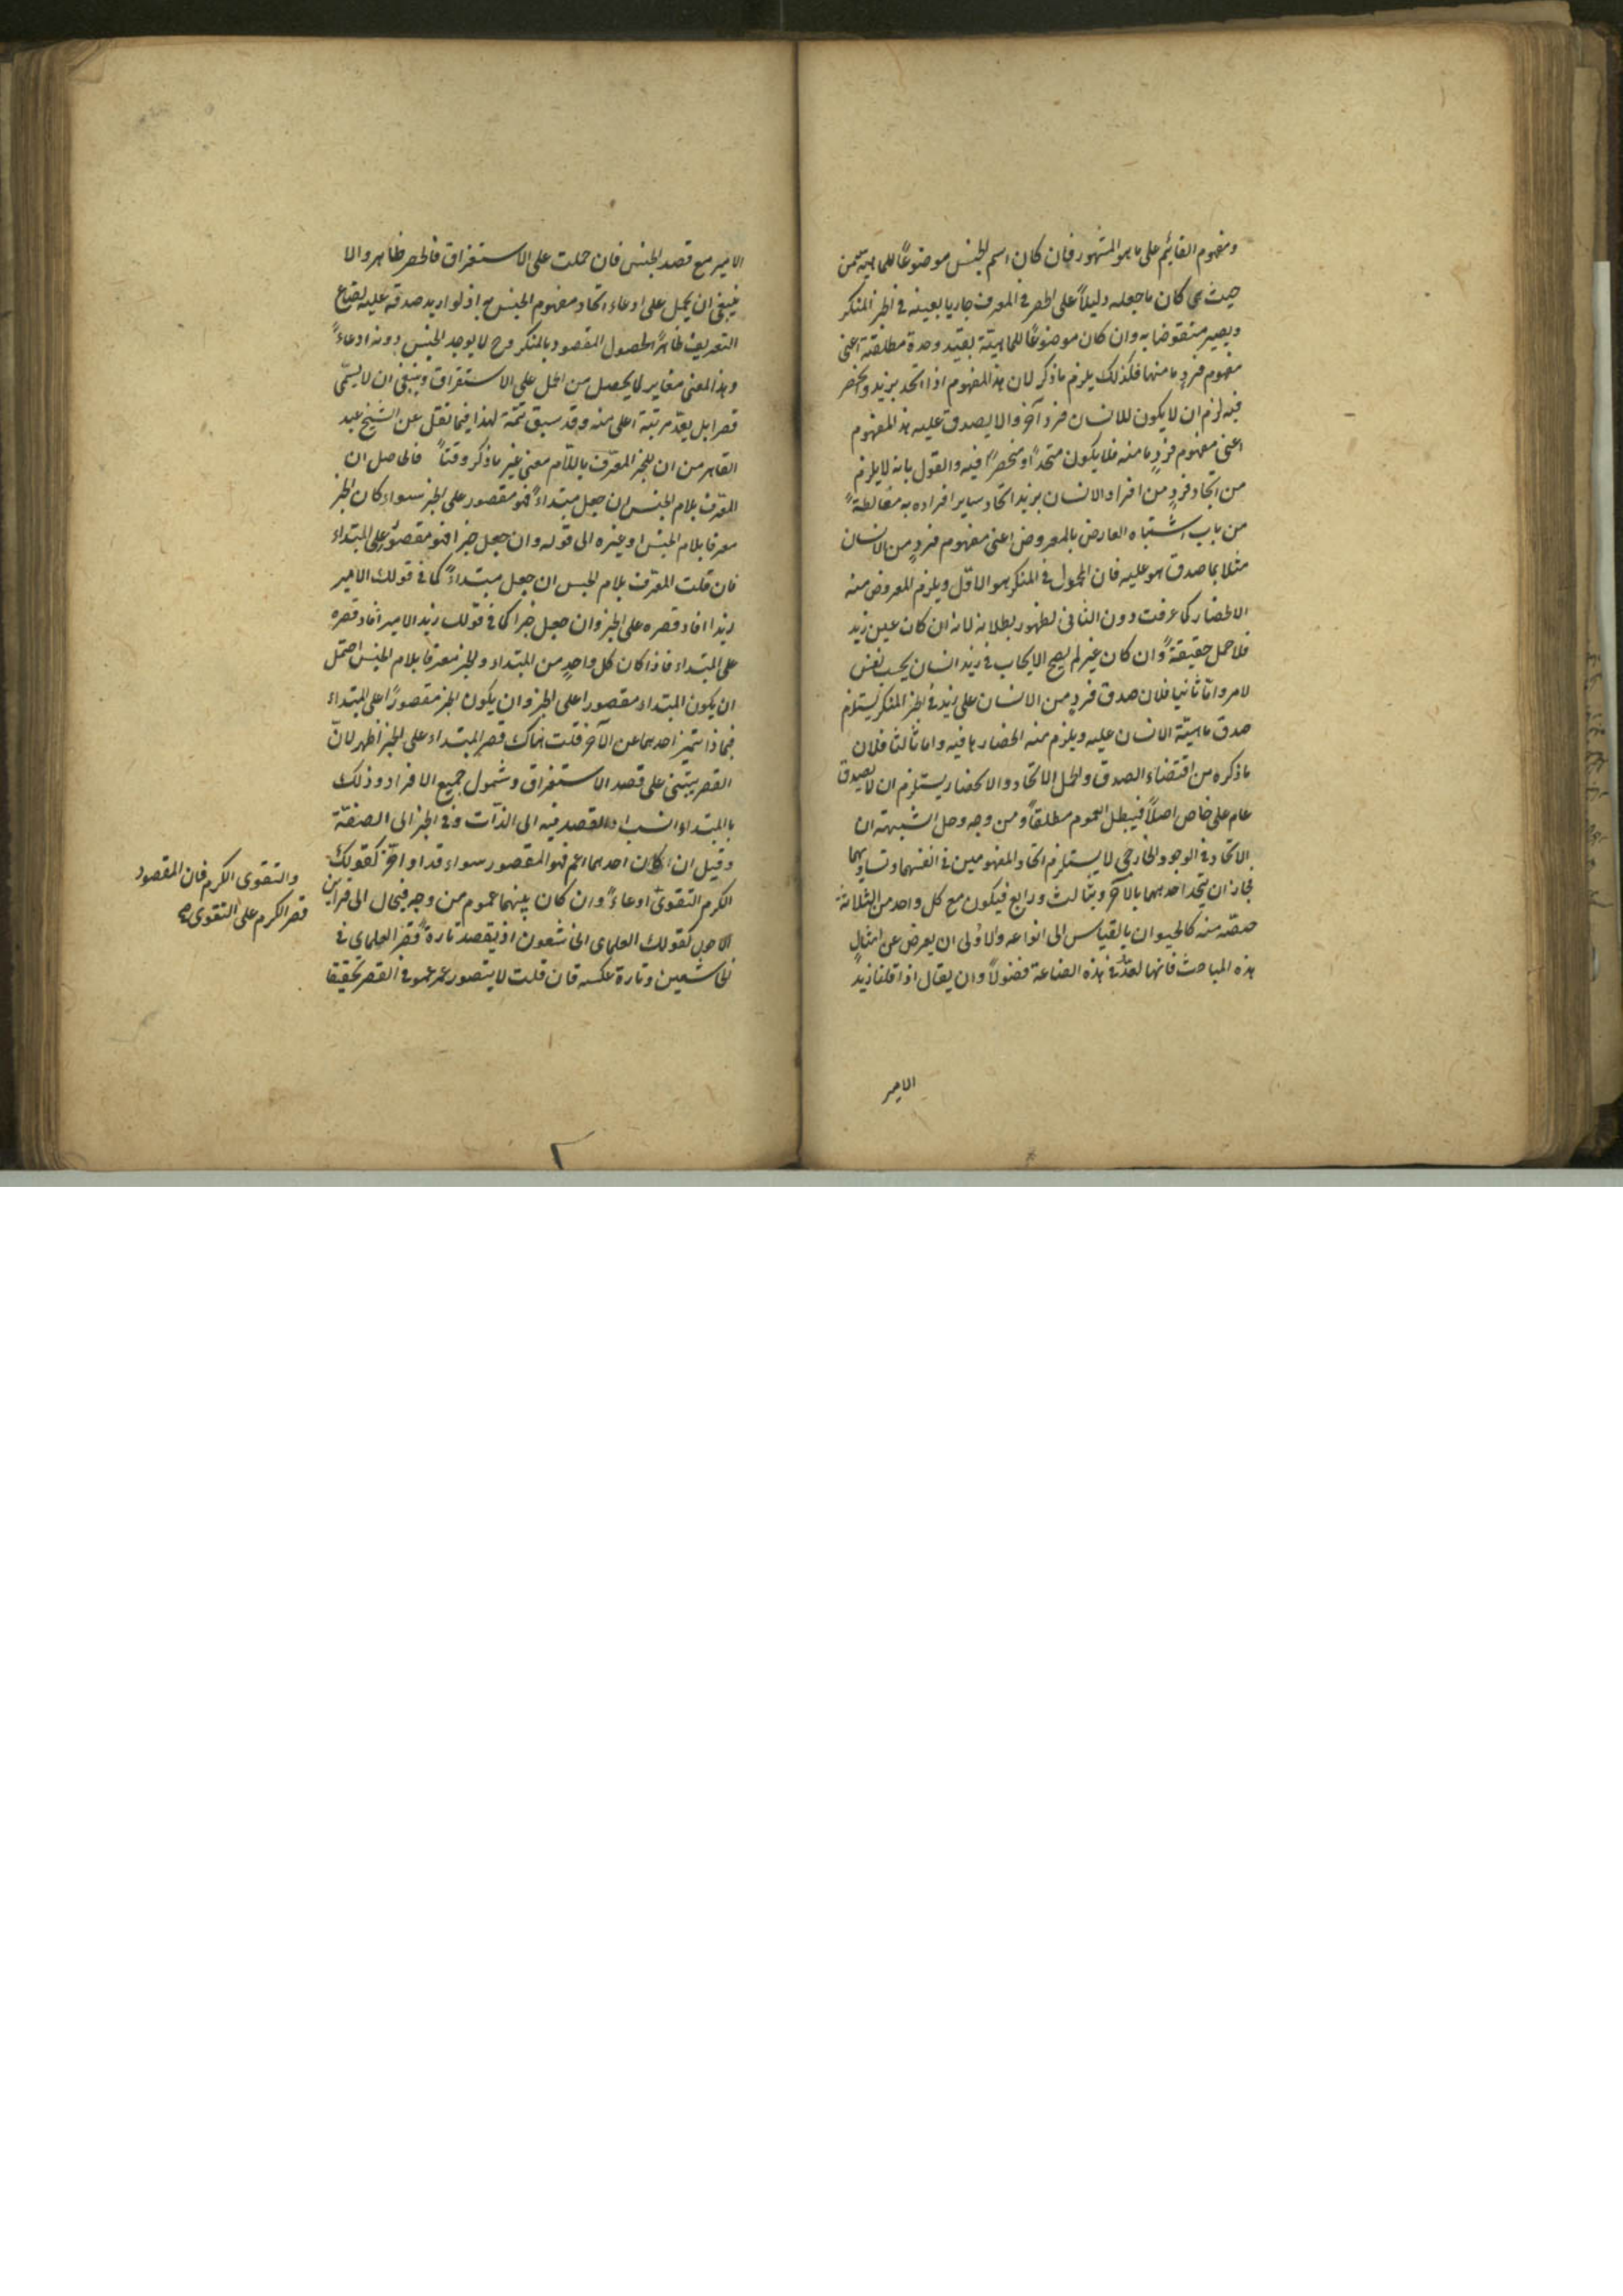 ومفهوم القايم على ما هو المشهور فان كان اسم الجنس موضوعاً للماهية من
حيث هى كان ما جعله دليلاً على الحصر فى المعرف جاريا بعينه فى الخبر المنكر
ويصير منقوضا به وان كان موضوعاً للماهية بقيد وحدة مطلقة اعنى
مفهوم فردٍ ما منها فكذلك يلزم ما ذكر لان هذا المفهوم اذا اتحد بزيد وانحصر
فيه لزم ان لا يكون للانسان فرد آخر والا لصدق عليه هذا المفهوم
اعنى مفهوم فردٍ ما منه فلا يكون متحداً او منحصراً فيه والقول بانه لا يلزم
من اتحاد فردٍ من افراد الانسان بزيد اتحاد ساير افراده به مغالطةً
من باب اشتباه العارض بالمعروض اعنى مفهوم فردٍ من الانسان
مثلا بما صدق هو عليه فان المحمول فى المنكر هو الاول ويلزم المعروض منه
الانحصار كما عرفت دون الثانى لظهور بطلانه لانه ان كان عين زيد
فلا حمل حقيقةً وان كان غير لم يصح الايجاب فى زيد انسان بحسب نفس
لامر واما ثانيا فلان صدق فردٍ من الانسان على زيد فى الخبر المنكر يستلزم
صدق ماهية الانسان عليه ويلزم منه انحصارها فيه واما ثالثا فلان
ما ذكره من اقتضاء الصدق والحمل الاتحاد والانحصار يستلزم ان لا يصدق
عام على خاص اصلاً فيبطل العموم مطلقاً ومن وجه وحل الشبهة ان
الاتحاد فى الوجود الخارجى لا يستلزم اتحاد المفهومين فى انفسهما وتساويهما
لجاز ان يتحد احدهما بالآخر وبثالث ورابع فيكون مع كل واحد من الثلاثة
حصّة منه كالحيوان بالقياس الى انواعه والاولى ان يعرض عن امثال
هذه المباحث فانها تعدّ فى هذه الصناعة فضولاً وان يقال اذا قلنا زيد
الامير
الامير مع قصد الجنس فان حملت على الاستغراق فالحصر ظاهر والا
ينبغى ان يحمل على ادعاء اتحاد مفهوم الجنس به اذ لو اريد صدقه عليه لضاع
التعريف ظاهراً لحصول المقصود بالمنكر وح لا يوجد الجنس دونه ادعاءً
وهذا المعنى مغاير لما يحصل من الحمل على الاستغراق وينبغى ان لا يسمّى
قصرا بل يعدّ مرتبة اعلى منه وقد سبق تتمة لهذا فيما نقل عن الشيخ عبد
القاهر من ان للخبر المعرّف باللام معنى غير ما ذكر وقتاً فالحاصل ان
المعرّف بلام الجنس ان جعل مبتداءً فهو مقصور على الخبر سواء كان الخبر
معرفا بلام الجنس او غيره الى قوله وان جعل خبرا فهو مقصور على المبتداء
فان قلت المعرّف بلام الجنس ان جعل مبتداءً كما فى قولك الامير
زيد افاد قصره على الخبر وان جعل خبرا كما فى قولك زيد الامير افاد قصره
على المبتداء فاذا كان كل واحدٍ من المبتداء والخبر معرفا بلام الجنس احتمل
ان يكون المبتداء مقصورا على الخبر وان يكون الخبر مقصوراً على المبتداء
فبماذا يتميز احدهما عن الآخر قلت هناك قصر المبتداء على الخبر اظهر لانّ
القصر يبتنى على قصد الاستغراق وشمول جميع الافراد وذلك
بالمبتداء انسب اذ القصد فيه الى الذات وفى الخبر الى الصفة
وقيل ان كان احدهما اعم فهو المقصور سواء قدم او اخّر كقولك
الكرم التقوى ادعاءً وان كان بينهما عموم من وجه فيحال الى قراين
الاحوال كقولك العلماء الخاشعون اذ يقصد تارةً قصر العلماء فى
الخاشعين وتارة عكسه فان قلت لا يتصور عموم فى القصر تحقيقا
والتقوى الكرم فان المقصود
قصر الكرم على التقوى صح